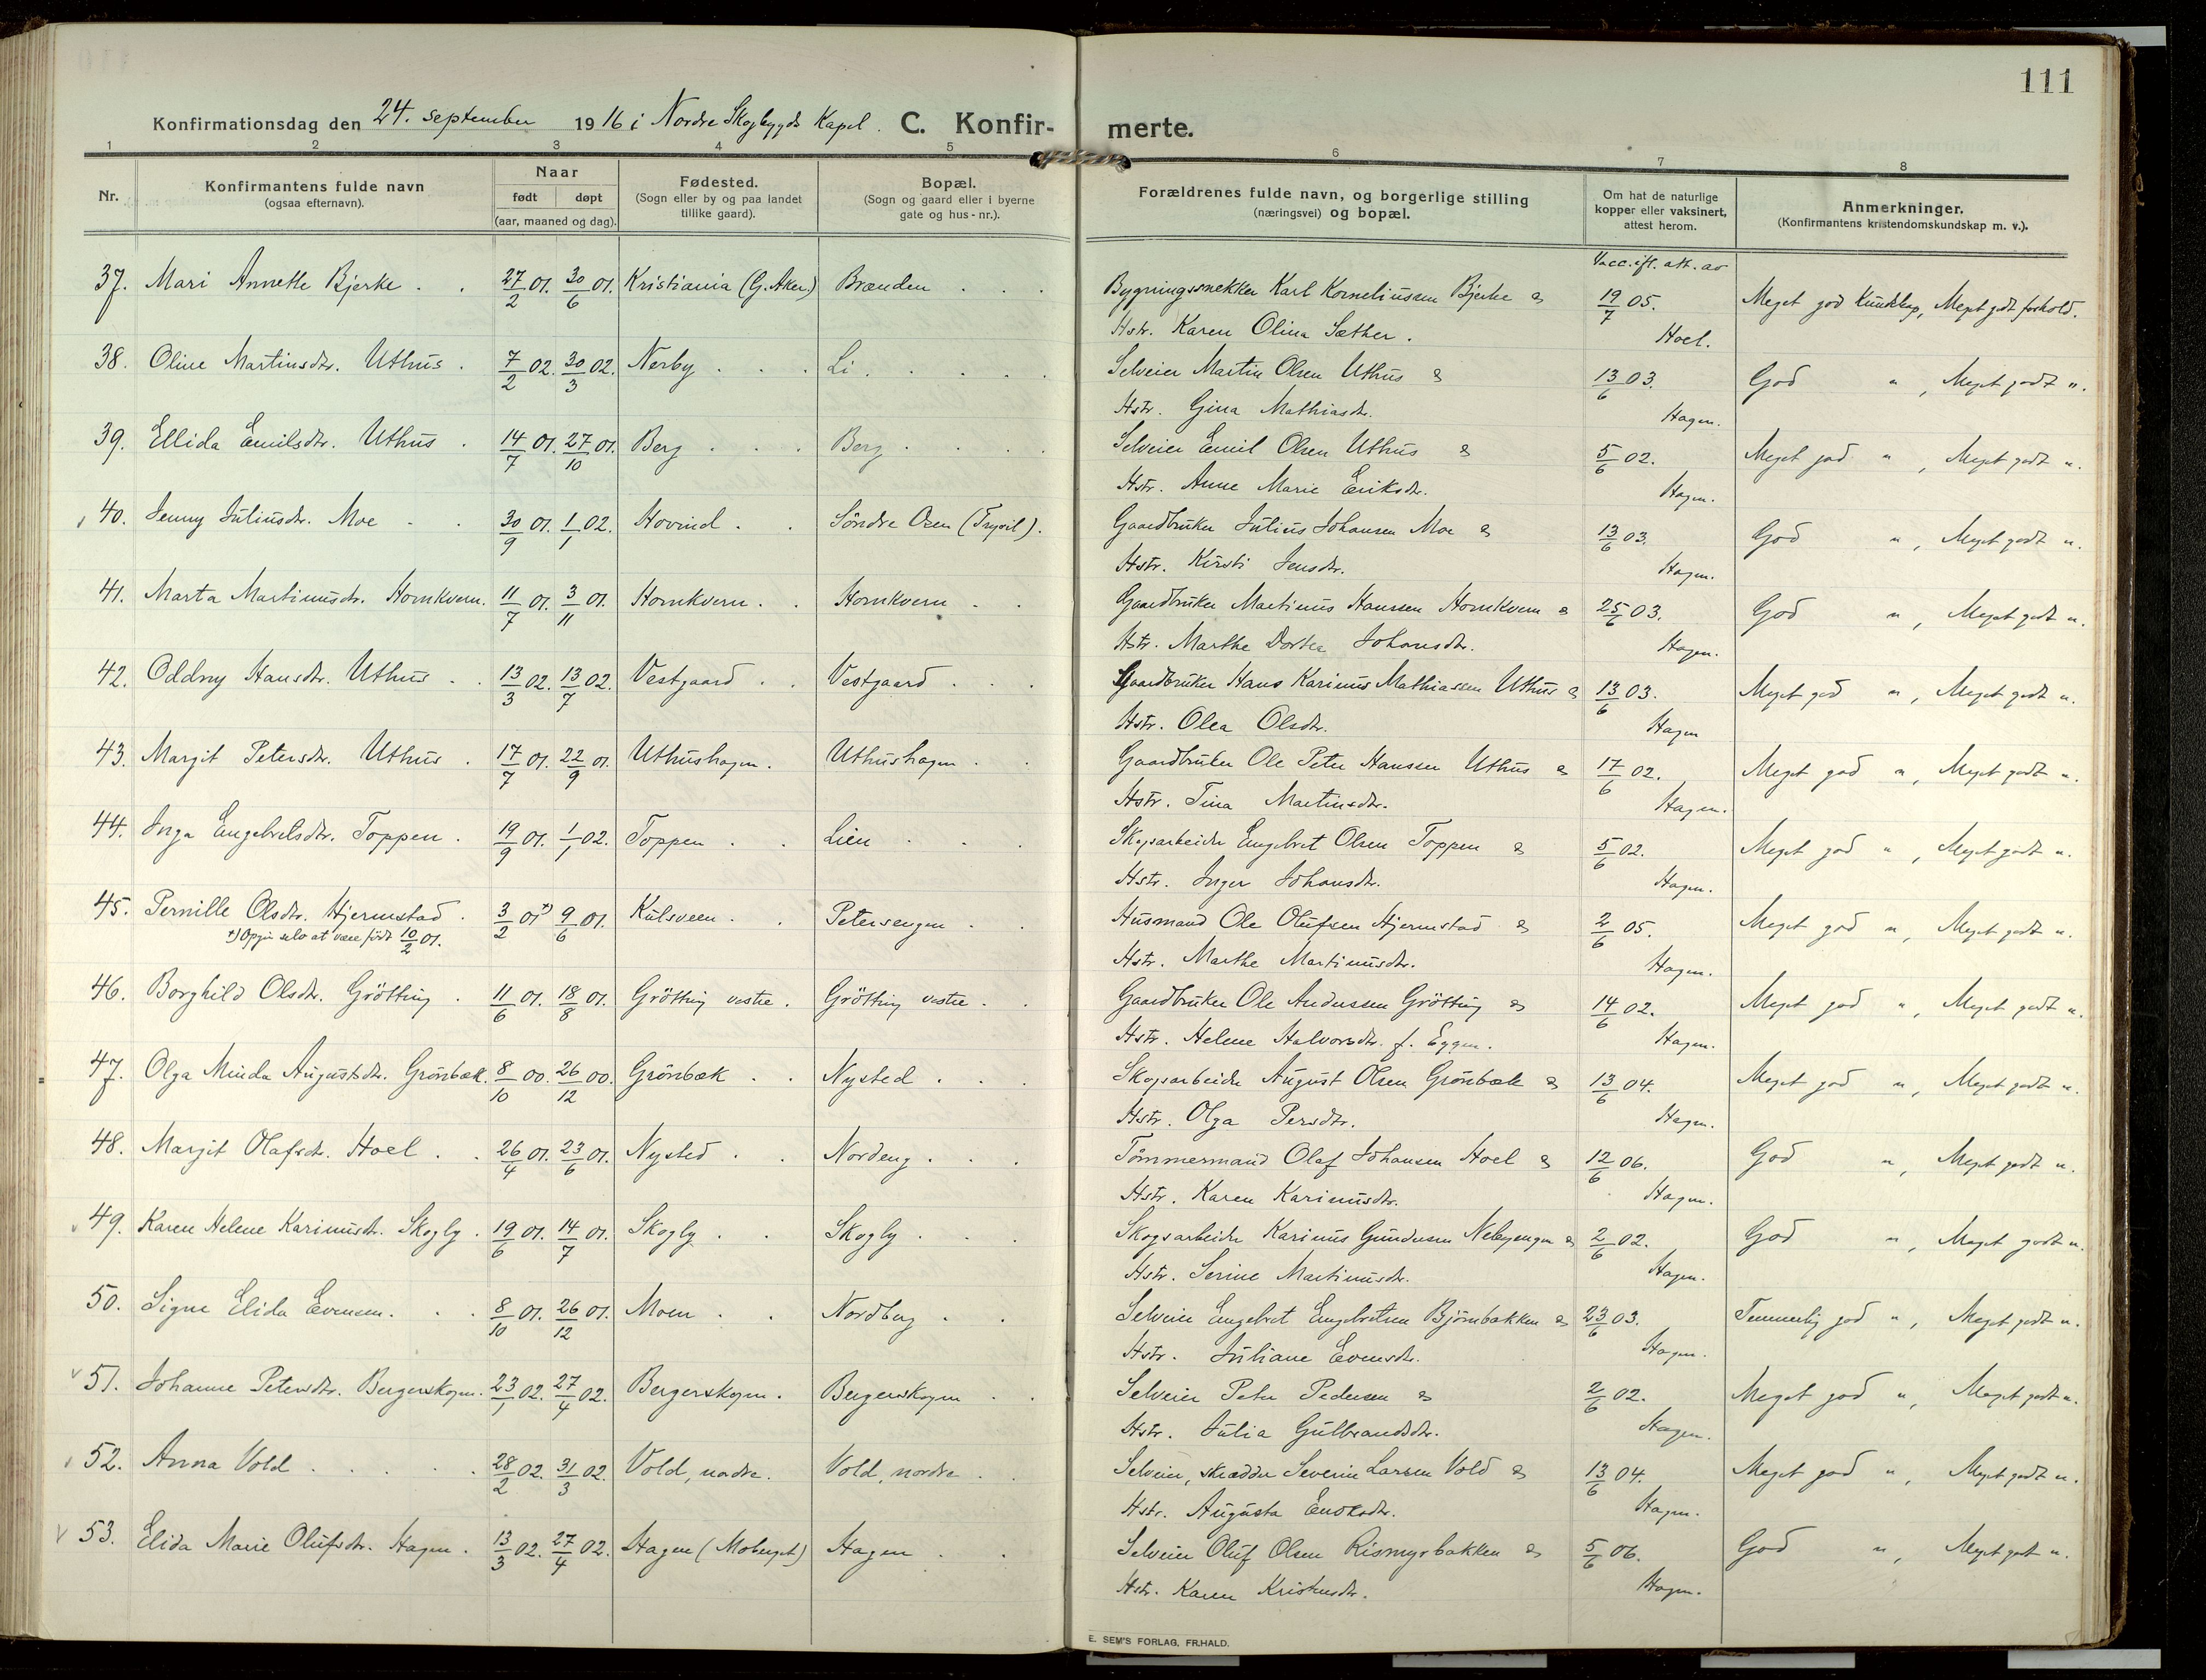 111
Konfirmationsdag den 24. september 1916 i Nordre Skogbygds Kapel. C. Konfirmerte.
1 2 3 4 5 6 7 8
Nr. Konfirmantens fulde navn (ogsaa efternavn). Naar født døpt (aar, maaned og dag). Fødested. (Sogn eller by og paa landet tillike gaard). Bopæl. (Sogn og gaard eller i byerne gate og hus-nr.). Forældrenes fulde navn, og borgerlige stilling (næringsvei) og bopæl. Om hat de naturlige kopper eller vaksinert, attest herom. Anmerkninger. (Konfirmantens kristendomskundskap m. v.).
Vacc. ifl. att. av
37. Mari Annette Bjerke . . 27/2 01. 30/6 01. Kristiania (G. Aker.) Brænden . . . Bygningssnekker Karl Korneliussen Bjerke & 19/7 05. Meget god kundskap, Meget godt forhold.
Hstr. Karen Olina Sæther. Hoel.
38. Oline Martinsdtr. Uthus . 7/2 02. 30/3 02. Nerby . . . Li . . . . . Selveier Martin Olsen Uthus & 13/6 03. God " , Meget godt ".
Hstr. Gina Mathiasdtr. Hagen.
39. Ellida Emilsdtr. Uthus . 14/7 01. 27/10 01. Berg . . . Berg . . . . Selveier Emil Olsen Uthus & 5/6 02. Meget god " , Meget godt ".
Hstr. Anne Marie Eriksdtr. Hagen.
40. Jenny Juliusdtr. Moe . . 30/9 01. 1/1 02. Hovind . . Söndre Osen (Trysil). Gaardbruker Julius Johansen Moe & 13/6 03. God " , Meget godt ".
Hstr. Kirsti Jensdtr. Hagen.
41. Marta Martinusdtr. Hornkvern. 11/7 01. 3/11 01. Hornkvern . . Hornkvern . . Gaardbruker Martinus Hanssen Hornkvern & 25/6 03. God " , Meget godt ".
Hstr. Marthe Dortea Johansdtr. Hagen.
42. Oddny Hansdtr. Uthus . . 13/3 02. 13/7 02. Vestgaard . . Vestgaard . . . Gaardbruker Hans Karinus Mathiassen Uthus & 13/6 03. Meget god " , Meget godt ".
Hstr. Olea Olsdtr. Hagen
43. Margit Petersdtr. Uthus . 17/7 01. 22/9 01. Uthushagen . Uthushagen . . Gaardbruker Ole Peter Hanssen Uthus & 17/6 02. Meget god " , Meget godt ".
Hstr. Tina Martinsdtr. Hagen.
44. Inga Engebretsdtr. Toppen . 19/9 01. 1/1 02. Toppen . . Lien . . . Skogsarbeider Engebret Olsen Toppen & 5/6 02. Meget god " , Meget godt ".
Hstr. Inger Johansdtr. Hagen.
45. Pernille Olsdtr. Hjermstad . 3/2 01 +) 9/6 01. Kulsveen . . Petersengen . . Husmand Ole Olufsen Hjermstad & 2/6 05. Meget god " , Meget godt ".
+) Opgir selv at være født 10/2 01. Hstr. Marthe Martinusdtr. Hagen.
46. Borghild Olsdtr. Grötting . 11/6 01. 18/8 01. Grötting vestre . Grötting vestre . . Gaardbruker Ole Andersen Grötting & 14/6 02. Meget god " , Meget godt ".
Hstr. Helene Halvorsdtr. f. Eggen. Hagen.
47. Olga Minda Augustsdtr. Grönbæk. 8/10 00. 26/12 00. Grönbæk . . Nysted . . . Skogsarbeider August Olsen Grönbæk & 13/6 04. Meget god " , Meget godt ".
Hstr. Olga Persdtr. Hagen.
48. Margit Olafsdtr. Hoel . . 26/4 01. 23/6 01. Nysted . . Nordeng . . . Tömmermand Olaf Johansen Hoel & 12/6 06. God " , Meget godt ".
Hstr. Karen Karinusdtr. Hagen.
49. Karen Helene Karinusdtr. Skogly . 19/6 01. 14/7 01. Skogly . . Skogly . . . Skogsarbeider Karinus Gundersen Nebyengen & 2/6 02. God " , Meget godt ".
Hstr. Serine Martinusdtr. Hagen.
50. Signe Elida Evensen. . . 8/10 01. 26/12 01. Moen . . Nordberg . . Selveier Engebret Engebretsen Björnbakken & 23/6 03. Temmelig god " , Meget godt ".
Hstr. Juliane Evensdtr. Hagen.
51. Johanne Petersdtr. Bergerskogen. 23/1 02. 27/4 02. Bergerskogen . Bergerskogen . . Selveier Peter Pedersen & 2/6 02. Meget god " , Meget godt ".
Hstr. Julia Gulbrandsdtr. Hagen.
52. Anna Vold . . . . . 28/2 02. 31/3 02. Vold, nordre. Vold, nordre . . Selveier, skrædder Severin Larsen Vold & 13/6 04. Meget god " , Meget godt ".
Hstr. Augusta Enoksdtr. Hagen.
53. Elida Marie Olufsdtr. Hagen . 13/3 02. 27/4 02. Hagen (Moberget) Hagen . . Selveier Oluf Olsen Rismyrbakken & 5/6 06. God " , Meget godt ".
Hstr. Karen Kristensdtr. Hagen.
E. SEM'S FORLAG, FR.HALD.